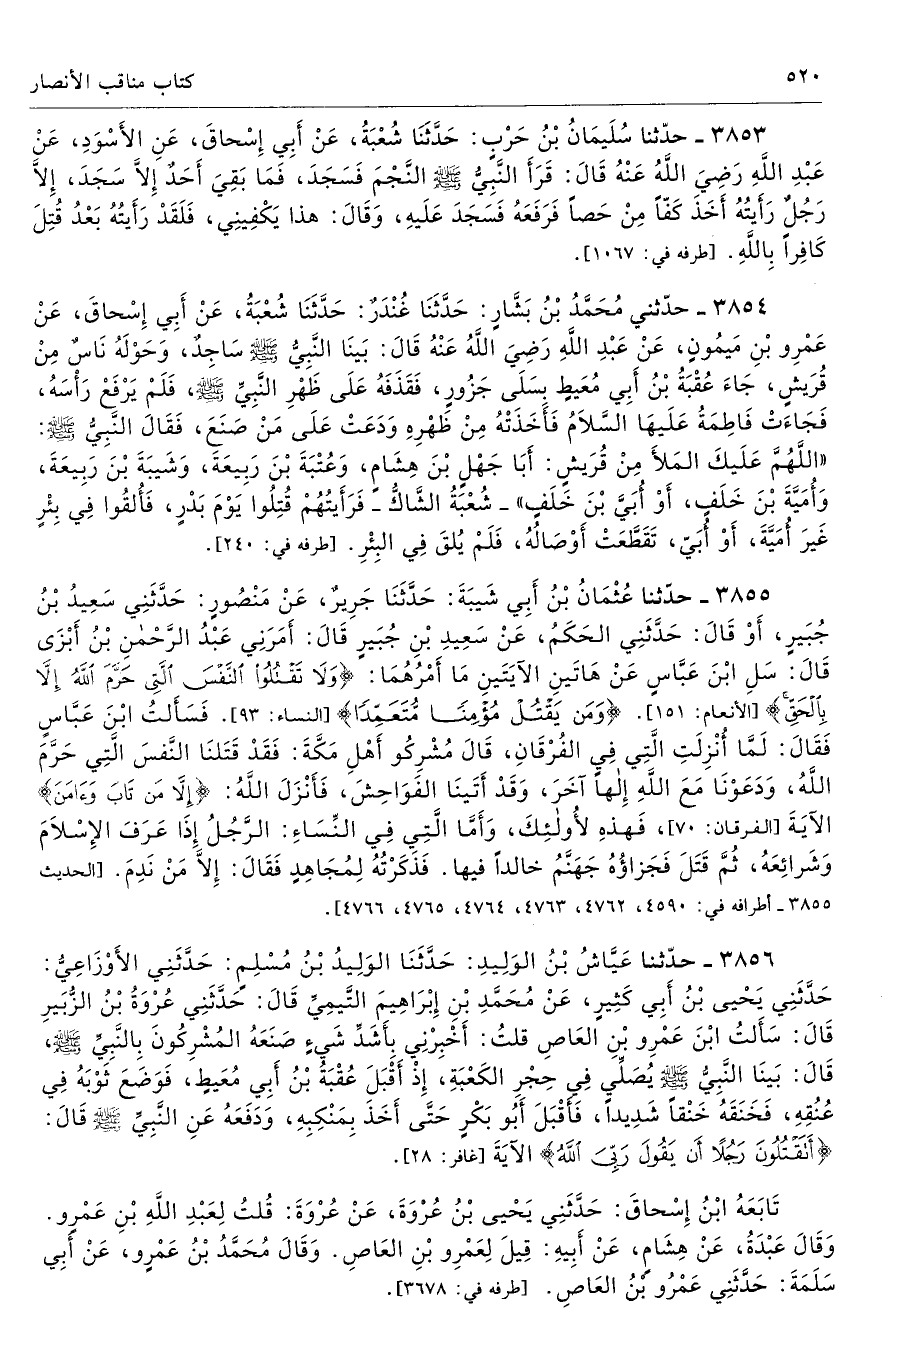 ٥٢٠ كتاب مناقب الأنصار
٣٨٥٣ ـ حدّثنا سُلَيمَانُ بْنُ حَرْبٍ: حَدَّثَنَا شُعْبَةُ، عَنْ أَبِي إِسْحاقَ، عَنِ الأَسْوَدِ، عَنْ
عَبْدِ اللَّهِ رَضِيَ اللَّهُ عَنْهُ قَالَ: قَرَأَ النَّبِيُّ ﷺ النَّجْمَ فَسَجَدَ، فَمَا بَقِيَ أَحَدٌ إِلاَّ سَجَدَ، إِلاَّ
رَجُلٌ رَأَيتُهُ أَخَذَ كَفّاً مِنْ حَصاً فَرَفَعَهُ فَسَجَدَ عَلَيهِ، وَقَالَ: هذا يَكْفِينِي، فَلَقَدْ رَأَيتُهُ بَعْدُ قُتِلَ
كَافِراً بِاللَّهِ. [طرفه في: ١٠٦٧].
٣٨٥٤ ـ حدّثني مُحَمَّدُ بْنُ بَشَّارٍ: حَدَّثَنَا غُنْدَرٌ: حَدَّثَنَا شُعْبَةُ، عَنْ أَبِي إِسْحاقَ، عَنْ
عَمْرِو بْنِ مَيمُونٍ، عَنْ عَبْدِ اللَّهِ رَضِيَ اللَّهُ عَنْهُ قَالَ: بَينَا النَّبِيُّ ﷺ سَاجِدٌ، وَحَوْلَهُ نَاسٌ مِنْ
قُرَيشٍ، جَاءَ عُقْبَةُ بْنُ أَبِي مُعَيطٍ بِسَلَى جَزُورٍ، فَقَذَفَهُ عَلَى ظَهْرِ النَّبِيِّ ﷺ، فَلَمْ يَرْفَعْ رَأْسَهُ،
فَجَاءَتْ فَاطِمَةُ عَلَيهَا السَّلاَمُ فَأَخَذَتْهُ مِنْ ظَهْرِهِ وَدَعَتْ عَلَى مَنْ صَنَعَ، فَقَالَ النَّبِيُّ ﷺ:
«اللَّهُمَّ عَلَيكَ المَلأَ مِنْ قُرَيشٍ: أَبَا جَهْلِ بْنَ هِشَامٍ، وَعُتْبَةَ بْنَ رَبِيعَةَ، وَشَيبَةَ بْنَ رَبِيعَةَ،
وَأُمَيَّةَ بْنَ خَلَفٍ، أَوْ أُبَيَّ بْنَ خَلَفٍ» ـ شُعْبَةُ الشَّاكُّ ـ فَرَأَيتُهُمْ قُتِلُوا يَوْمَ بَدْرٍ، فَأُلقُوا فِي بِئْرٍ
غَيرَ أُمَيَّةَ، أَوْ أُبَيٍّ، تَقَطَّعَتْ أَوْصَالُهُ، فَلَمْ يُلقَ فِي البِئْرِ. [طرفه في: ٢٤٠].
٣٨٥٥ ـ حدّثنا عُثْمَانُ بْنُ أَبِي شَيبَةَ: حَدَّثَنَا جَرِيرٌ، عَنْ مَنْصُورٍ: حَدَّثَنِي سَعِيدُ بْنُ
جُبَيرٍ، أَوْ قَالَ: حَدَّثَنِي الحَكَمُ، عَنْ سَعِيدِ بْنِ جُبَيرٍ قَالَ: أَمَرَنِي عَبْدُ الرَّحْمٰنِ بْنُ أَبْزَى
قَالَ: سَلِ ابْنَ عَبَّاسٍ عَنْ هَاتَينِ الآيَتَينِ مَا أَمْرُهُمَا: ﴿وَلَا تَقْتُلُوا۟ ٱلنَّفْسَ ٱلَّتِى حَرَّمَ ٱللَّهُ إِلَّا
بِٱلْحَقِّ﴾ [الأنعام: ١٥١]. ﴿وَمَن يَقْتُلْ مُؤْمِنًا مُّتَعَمِّدًا﴾ [النساء: ٩٣]. فَسَأَلتُ ابْنَ عَبَّاسٍ
فَقَالَ: لَمَّا أُنْزِلَتِ الَّتِي فِي الفُرْقَانِ، قَالَ مُشْرِكُو أَهْلِ مَكَّةَ: فَقَدْ قَتَلنَا النَّفسَ الَّتِي حَرَّمَ
اللَّهُ، وَدَعَوْنَا مَعَ اللَّهِ إِلٰهاً آخَرَ، وَقَدْ أَتَينَا الفَوَاحِشَ، فَأَنْزَلَ اللَّهُ: ﴿إِلَّا مَن تَابَ وَءَامَنَ﴾
الآيَةَ [الفرقان: ٧٠]، فَهذهِ لأُولَئِكَ، وَأَمَّا الَّتِي فِي النِّسَاءِ: الرَّجُلُ إِذَا عَرَفَ الإِسْلاَمَ
وَشَرَائِعَهُ، ثُمَّ قَتَلَ فَجَزَاؤُهُ جَهَنَّمُ خالداً فيها. فَذَكَرْتُهُ لِمُجَاهِدٍ فَقَالَ: إِلاَّ مَنْ نَدِمَ. [الحديث
٣٨٥٥ ـ أطرافه في: ٤٥٩٠، ٤٧٦٢، ٤٧٦٣، ٤٧٦٤، ٤٧٦٥، ٤٧٦٦].
٣٨٥٦ ـ حدّثنا عَيَّاشُ بْنُ الوَلِيدِ: حَدَّثَنَا الوَلِيدُ بْنُ مُسْلِمٍ: حَدَّثَنِي الأَوْزَاعِيُّ:
حَدَّثَنِي يَحْيى بْنُ أَبِي كَثِيرٍ، عَنْ مُحَمَّدِ بْنِ إِبْرَاهِيمَ التَّيمِيِّ قَالَ: حَدَّثَنِي عُرْوَةُ بْنُ الزُّبَيرِ
قَالَ: سَأَلتُ ابْنَ عَمْرِو بْنِ العَاصِ قلتُ: أَخْبِرْنِي بِأَشَدِّ شَيءٍ صَنَعَهُ المُشْرِكُونَ بِالنَّبِيِّ ﷺ،
قَالَ: بَينَا النَّبِيُّ ﷺ يُصَلِّي فِي حِجْرِ الكَعْبَةِ، إِذْ أَقْبَلَ عُقْبَةُ بْنُ أَبِي مُعَيطٍ، فَوَضَعَ ثَوْبَهُ فِي
عُنُقِهِ، فَخَنَقَهُ خَنْقاً شَدِيداً، فَأَقْبَلَ أَبُو بَكْرٍ حَتَّى أَخَذَ بِمَنْكِبِهِ، وَدَفَعَهُ عَنِ النَّبِيِّ ﷺ قَالَ:
﴿أَتَقْتُلُونَ رَجُلًا أَن يَقُولَ رَبِّىَ ٱللَّهُ﴾ الآيَةَ [غافر: ٢٨].
تَابَعَهُ ابْنُ إِسْحاقَ: حَدَّثَنِي يَحْيى بْنُ عُرْوَةَ، عَنْ عُرْوَةَ: قُلتُ لِعَبْدِ اللَّهِ بْنِ عَمْرٍو.
وَقَالَ عَبْدَةُ، عَنْ هِشَامٍ، عَنْ أَبِيهِ: قِيلَ لِعَمْرِو بْنِ العَاصِ. وَقَالَ مُحَمَّدُ بْنُ عَمْرٍو، عَنْ أَبِي
سَلَمَةَ: حَدَّثَنِي عَمْرُو بْنُ العَاصِ. [طرفه في: ٣٦٧٨].